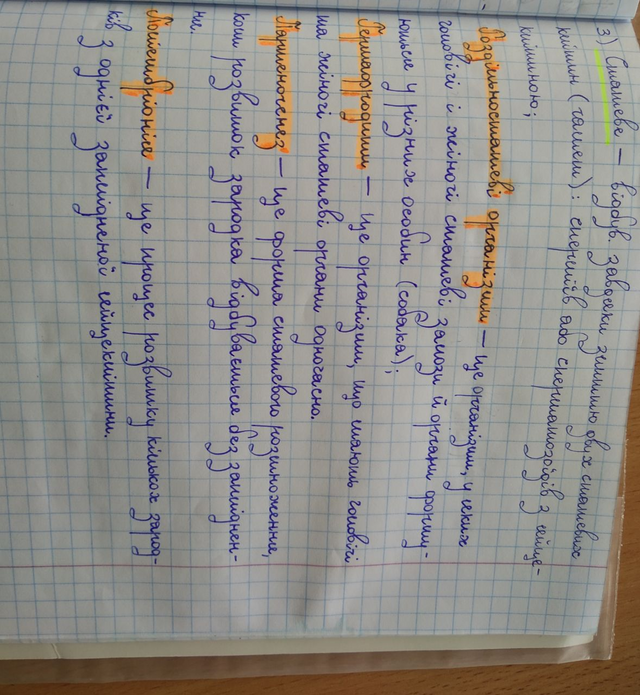 3) Статеве – відбув. завдяки злиттю двух статевих
клітин (гамети): сперміїв або сперматозоїдів з яйце-
клітиною;
Роздільностатеві організми – це організми, у яких
чоловічі і жіночі статеві залози й органи форму-
ються у різних особин (собака);
Гермафродити – це організми, що мають чоловічі
та жіночі статеві органи одночасно.
Партеногенез – це форма статевого розмноження,
коли розвиток зародка відбувається без запліднен-
ня.
Поліембріонія – це процес розвитку кількох зарод-
ків з однієї заплідненої яйцеклітини.